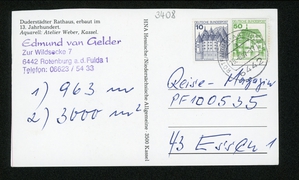 Duderstadter Rathaus, erbaut im
13. Jahrhundert.
Aquarell: Atelier Weber, Kassel.
Edmund van Gelder
Zur Wildsecke 7
6442 Rotenburg a.d. Fulda 1
Telefon: 06623 / 54 33
1) 963 m
2) 3000 m²
HNA Hessische/Niedersächsische Allgemeine 3500 Kassel
3408
10
50
Reise-Magazin
PF 100535
43 Essen 1